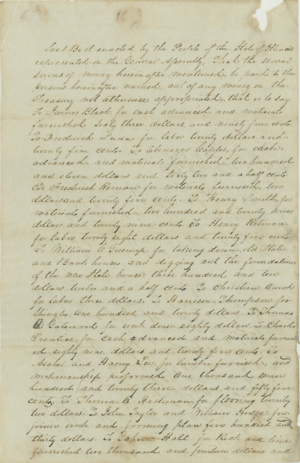 Sec 1 Be it enacted by the People of the State of Illinois
represented in the General Assembly, That the several
sums of money hereinafter mentioned be paid to the
persons hereinafter named, out of any money in the
Treasury not otherwise appropriated, that is to say
To Black for cash advanced and material
furnished sixty three dollars and ninety four cents
To Frederick for labor twenty dollars and
twenty five cents To Ebenezer Capps, for cash
advanced and materials furnished two hundred
and eleven dollars and sixty two and a half cents
To Frederick for materials furnished two
dollars and twenty five cents, To Henry Smith, for
materials furnished two hundred and twenty seven
dollars and twenty nine cents To Henry
for labor twenty eight dollars and twenty five cents
To William for taking down the State
and Bank houses and digging out the foundation
of the new State house three hundred and ten
dollars twelve and a half cents To Christian
for labor three dollars To Harrison Thompson for
Shingles one hundred and twenty dollars To Thomas
for work done eighty dollars To Charles
for Cash advanced and materials furnish
ed eighty nine dollars and twenty five cents To
and Henry for lumber furnished and
workmanship performed One thousand seven
hundred and twenty three dollars and fifty five
cents To Thomas for flooring twenty
two dollars To John Taylor and William for
joiners work and forming plan five hundred and
thirty dollars To Hall for Rock and lime
furnished two thousand and fourteen dollars and